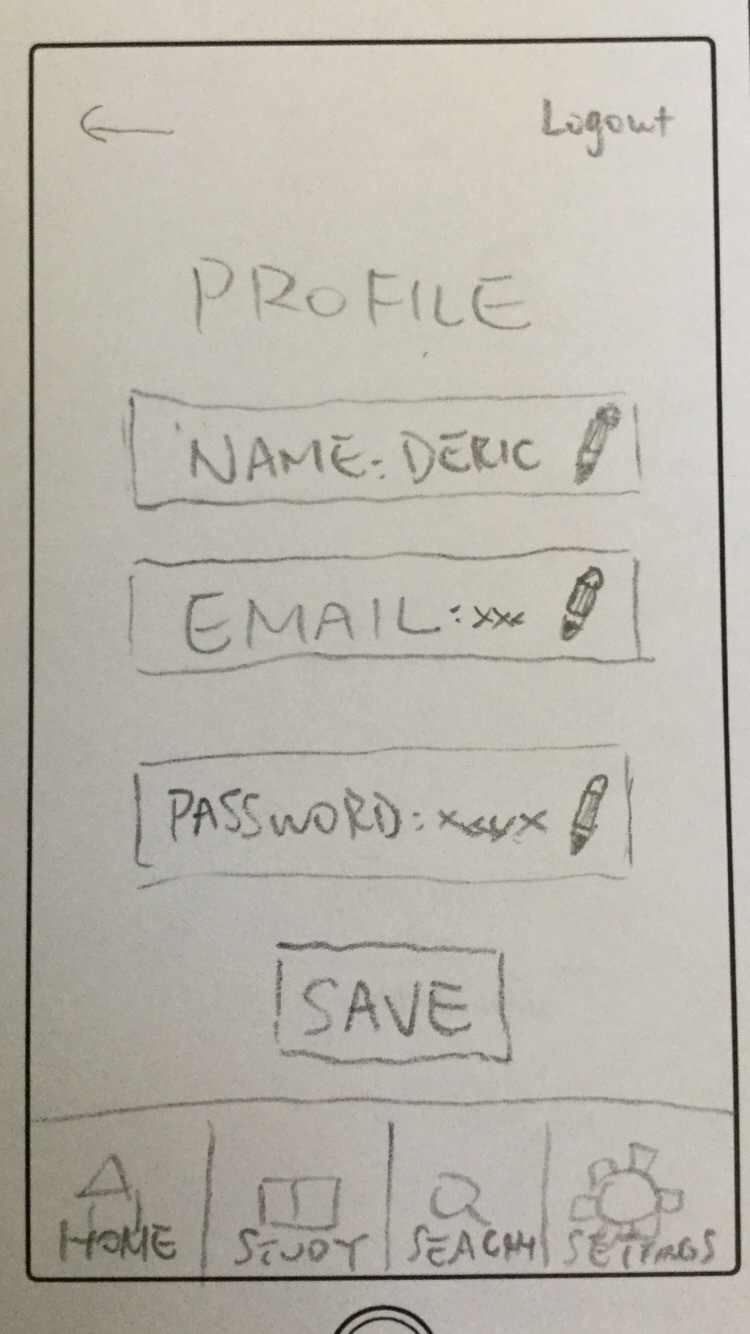 Logout
PROFILE
NAME: DERIC
EMAIL: xxx
PASSWORD: xxxx
SAVE
HOME STUDY SEACH SETTINGS